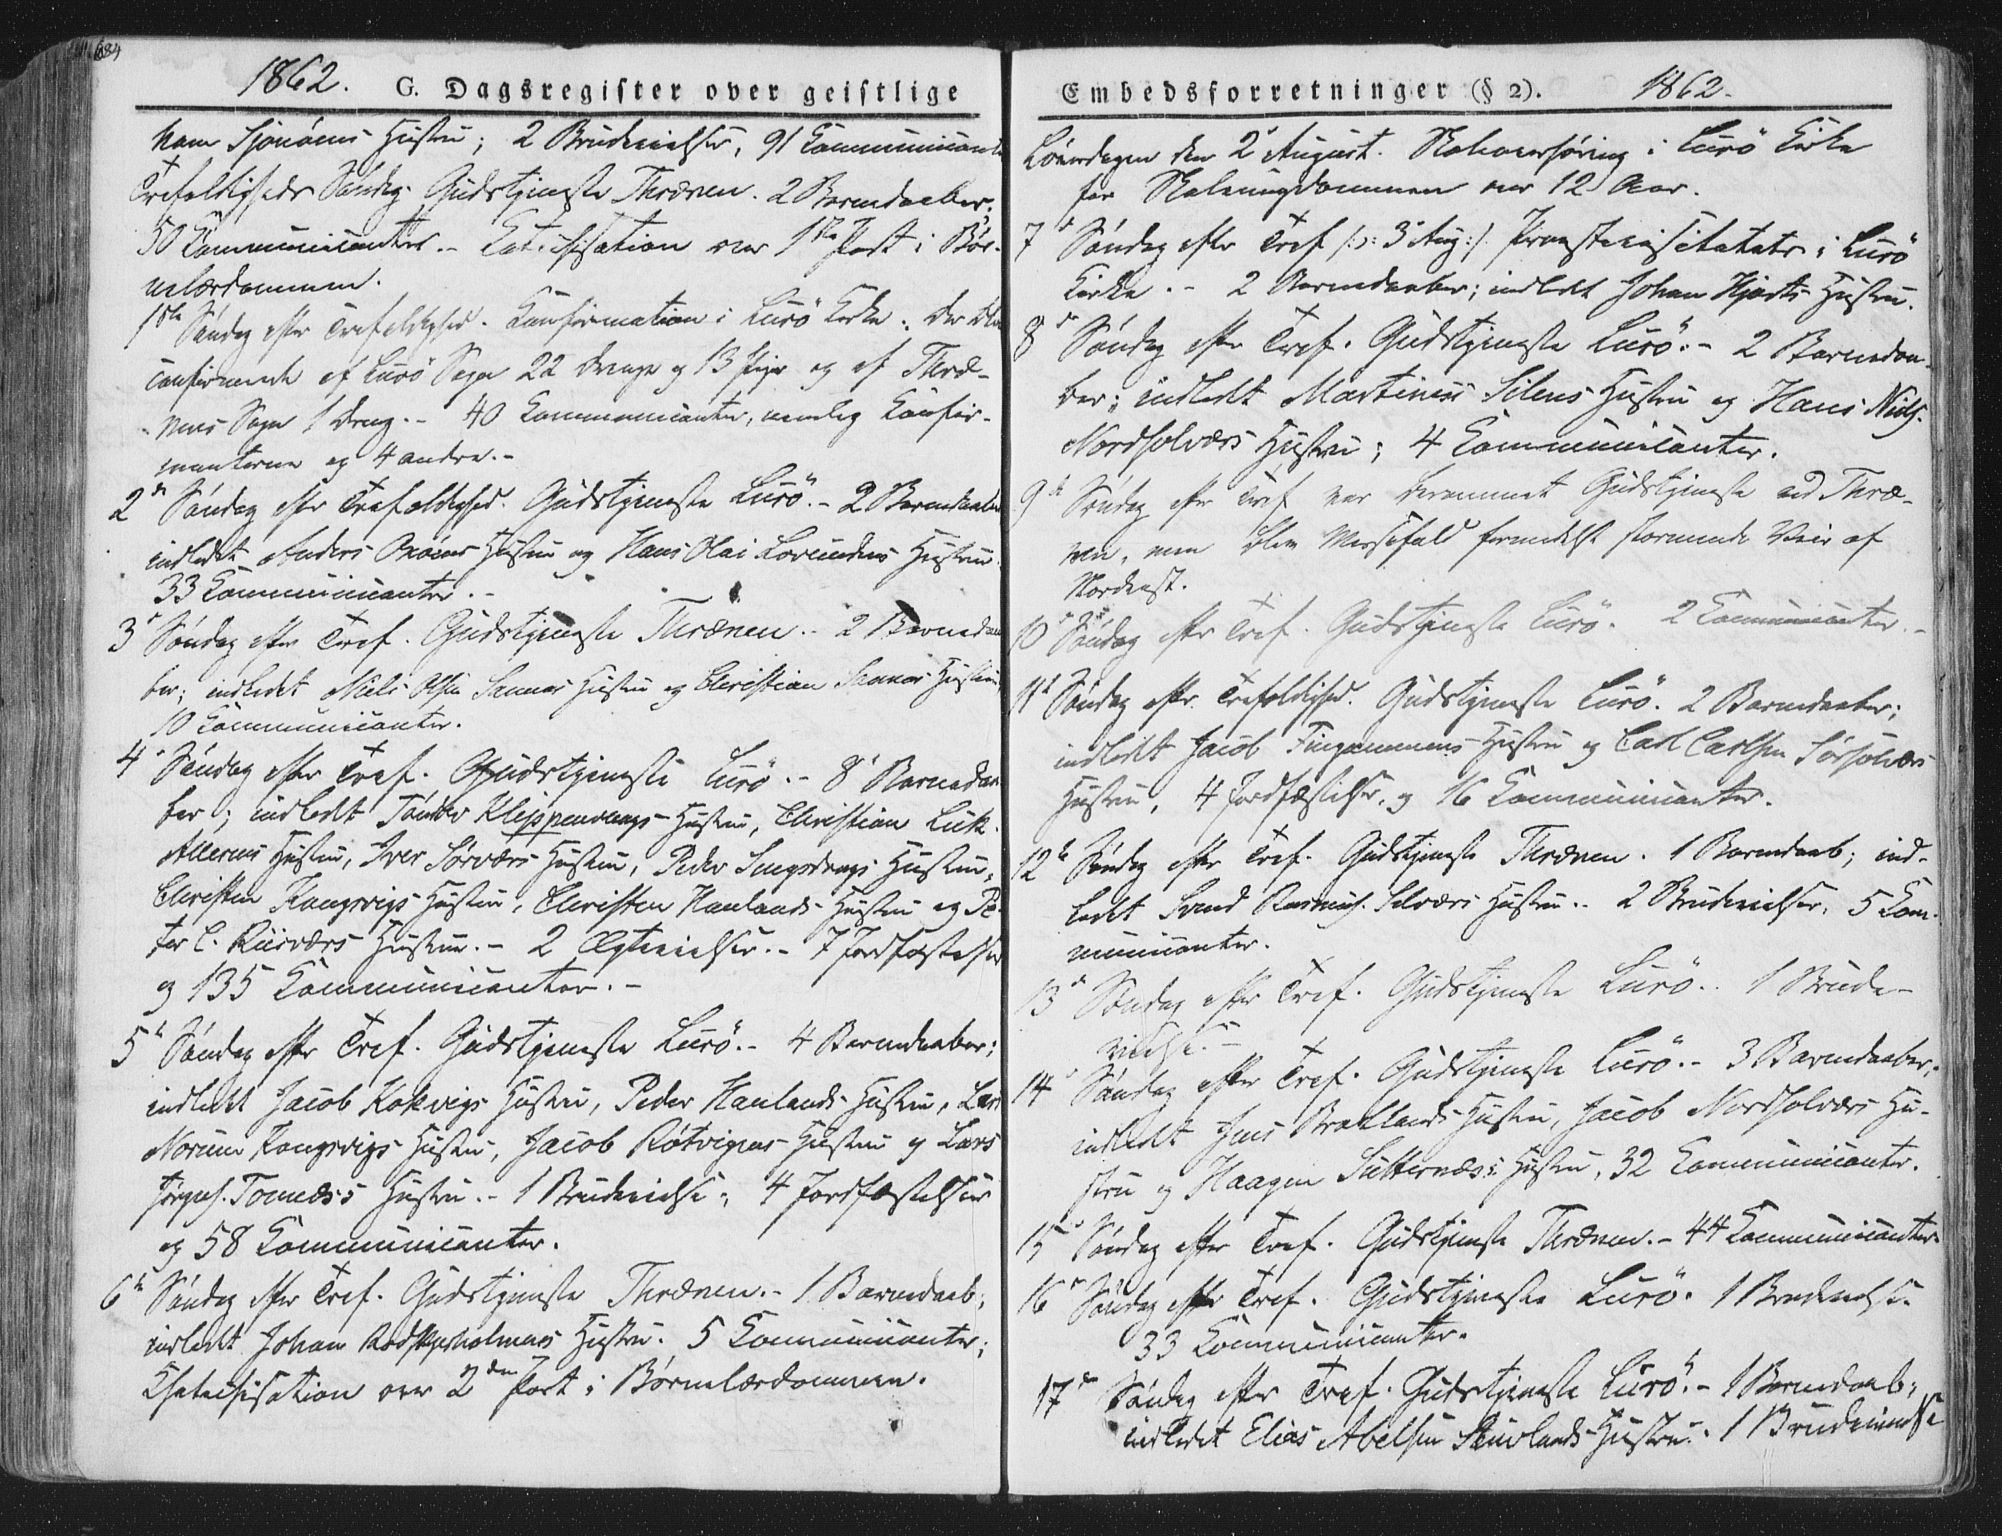 684
1862. G. Dagsregister over geistlige
Hustru; 2 Brudevielser, 91 Communicanter
Trefoldigheds Søndag. Gudstjeneste Thrænen. 2 Barnedaaber.
50 Communicanter. - Catechisation over 1ste Part i Bør-
nelærdommen.
1ste Søndag efter Trefoldighed. Confirmation i Lurö Kirke. Der blev
confirmerede af Lurö Sogn 22 Drenge og 13 Piger og af Thræ-
nens Sogn 1 Dreng. - 40 Communicanter, nemlig Confir-
manterne og 4 andre. -
2den Søndag efter Trefoldighed. Gudstjeneste Lurö. - 2 Barnedaaber
indledet Anders Hustru og Hans Olai Lovundens Hustru.
33 Communicanter. -
3die Søndag efter Tref. Gudstjeneste Thrænen. - 2 Barnedaa-
ber; indledet Niels Olsen Sannas Hustru og Christian Sannas Hustru,
10 Communicanter.
4de Søndag efter Tref. Gudstjeneste Lurö. - 8 Barnedaa-
ber; indledt Klippenvaags Hustru, Christian
Hustru, Iver Sørværs Hustru, Peder Hustru,
Christen Kongsvigs Hustru, Christen Haulands Hustru og Pe-
ter C. Hustru. - 2 Ægtevielser. - 7 Jordfæstelser
og 135 Communicanter. -
5te Søndag efter Tref. Gudstjeneste Lurö. - 4 Barnedaaber;
indledt Jacob Kokvigs Hustru, Peder Haulands Hustru, Lars
Norum Kongsvigs Hustru, Jacob Røtvigens Hustru og Lars
Jørgens. Tonnæss Hustru. - 1 Brudevielse; 4 Jordfæstelser
og 58 Communicanter.
6te Søndag efter Tref. Gudstjeneste Thrænen. - 1 Barnedaab;
indledt Johan Hustru. 5 Communicanter;
Chatechisation over 2den Part i Børnelærdommen.
Embedsforretninger (§ 2). 1862.
Löverdagen den 2 August. i Lurö Kirke
for Skoleungdommen over 12 Aar.
7de Søndag efter Tref /:ɔ: 3 Aug:/ Provstevisitats i Lurö
Kirke. - 2 Barnedaaber; indledt Johan Hjorts Hustru.
8de Søndag efter Tref. Gudstjeneste Lurö. - 2 Barnedaa-
ber; indledt Martinus Silens Hustru og Hans Niels.
Nordsolværs Hustru; 4 Communicanter.
9de Søndag efter Tref var berammet Gudstjeneste ved Thræ-
nen, men blev Messefald formedelst stormende Veir af
Nordvest.
10de Søndag efter Tref. Gudstjeneste Lurö. 2 Communicanter. -
11te Søndag efter Trefoldighed. Gudstjeneste Lurö. 2 Barnedaaber;
indledt Jacob Hustru og Carl Carlsen Sørsolværs
Hustru, 4 Jordfæstelser, og 16 Communicanter.
12te Søndag efter Tref. Gudstjeneste Thrænen. 1 Barnedaab; ind-
ledt Svend Rasmus. Selværs Hustru. - 2 Brudevielser, 5 Com-
municanter.
13de Søndag efter Tref. Gudstjeneste Lurö. - 1 Brude-
vielse. -
14de Søndag efter Tref. Gudstjeneste Lurö. - 3 Barnedaaber;
indledt Jens Hustru, Jacob Nordsolværs Hu-
stru og Haagen Hustru, 32 Communicanter.
15de Søndag efter Tref. Gudstjeneste Thrænen. - 44 Communicanter.
16de Søndag efter Tref. Gudstjeneste Lurö. 1 Brudevielse.
33 Communicanter.
17de Søndag efter Tref. Gudstjeneste Lurö. - 1 Barnedaab;
indledet Elias Abelsen Hustru. - 1 Brudevielse